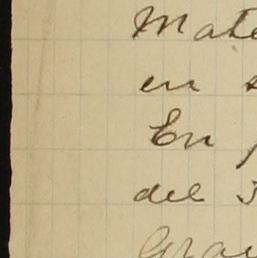 Mate
en s
En
del 3
Gra